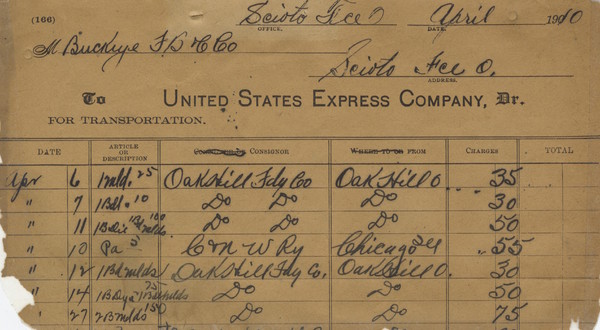 (166) Scioto Fce O April 1910
OFFICE. DATE.
M Buckeye F B Co
Scioto Fce O.
ADDRESS.
To UNITED STATES EXPRESS COMPANY, Dr.
FOR TRANSPORTATION.
DATE ARTICLE OR DESCRIPTION CONSIGNOR WHERE TO OR FROM CHARGES TOTAL
Apr 6 1 Bdl. 25 Oak Hill Fdy Co Oak Hill O. 35
" 7 1 Bd. 10 Do Do Do 30
" 11 Do Do Do 50
" 10 Pa 5 C & N W Ry Chicago 55
" 12 1 Bd mlds Oak Hill Fdy Co. Oak Hill O. 30
" 14 75 Do Do 50
" 27 2 B mlds 150 Do Do 75